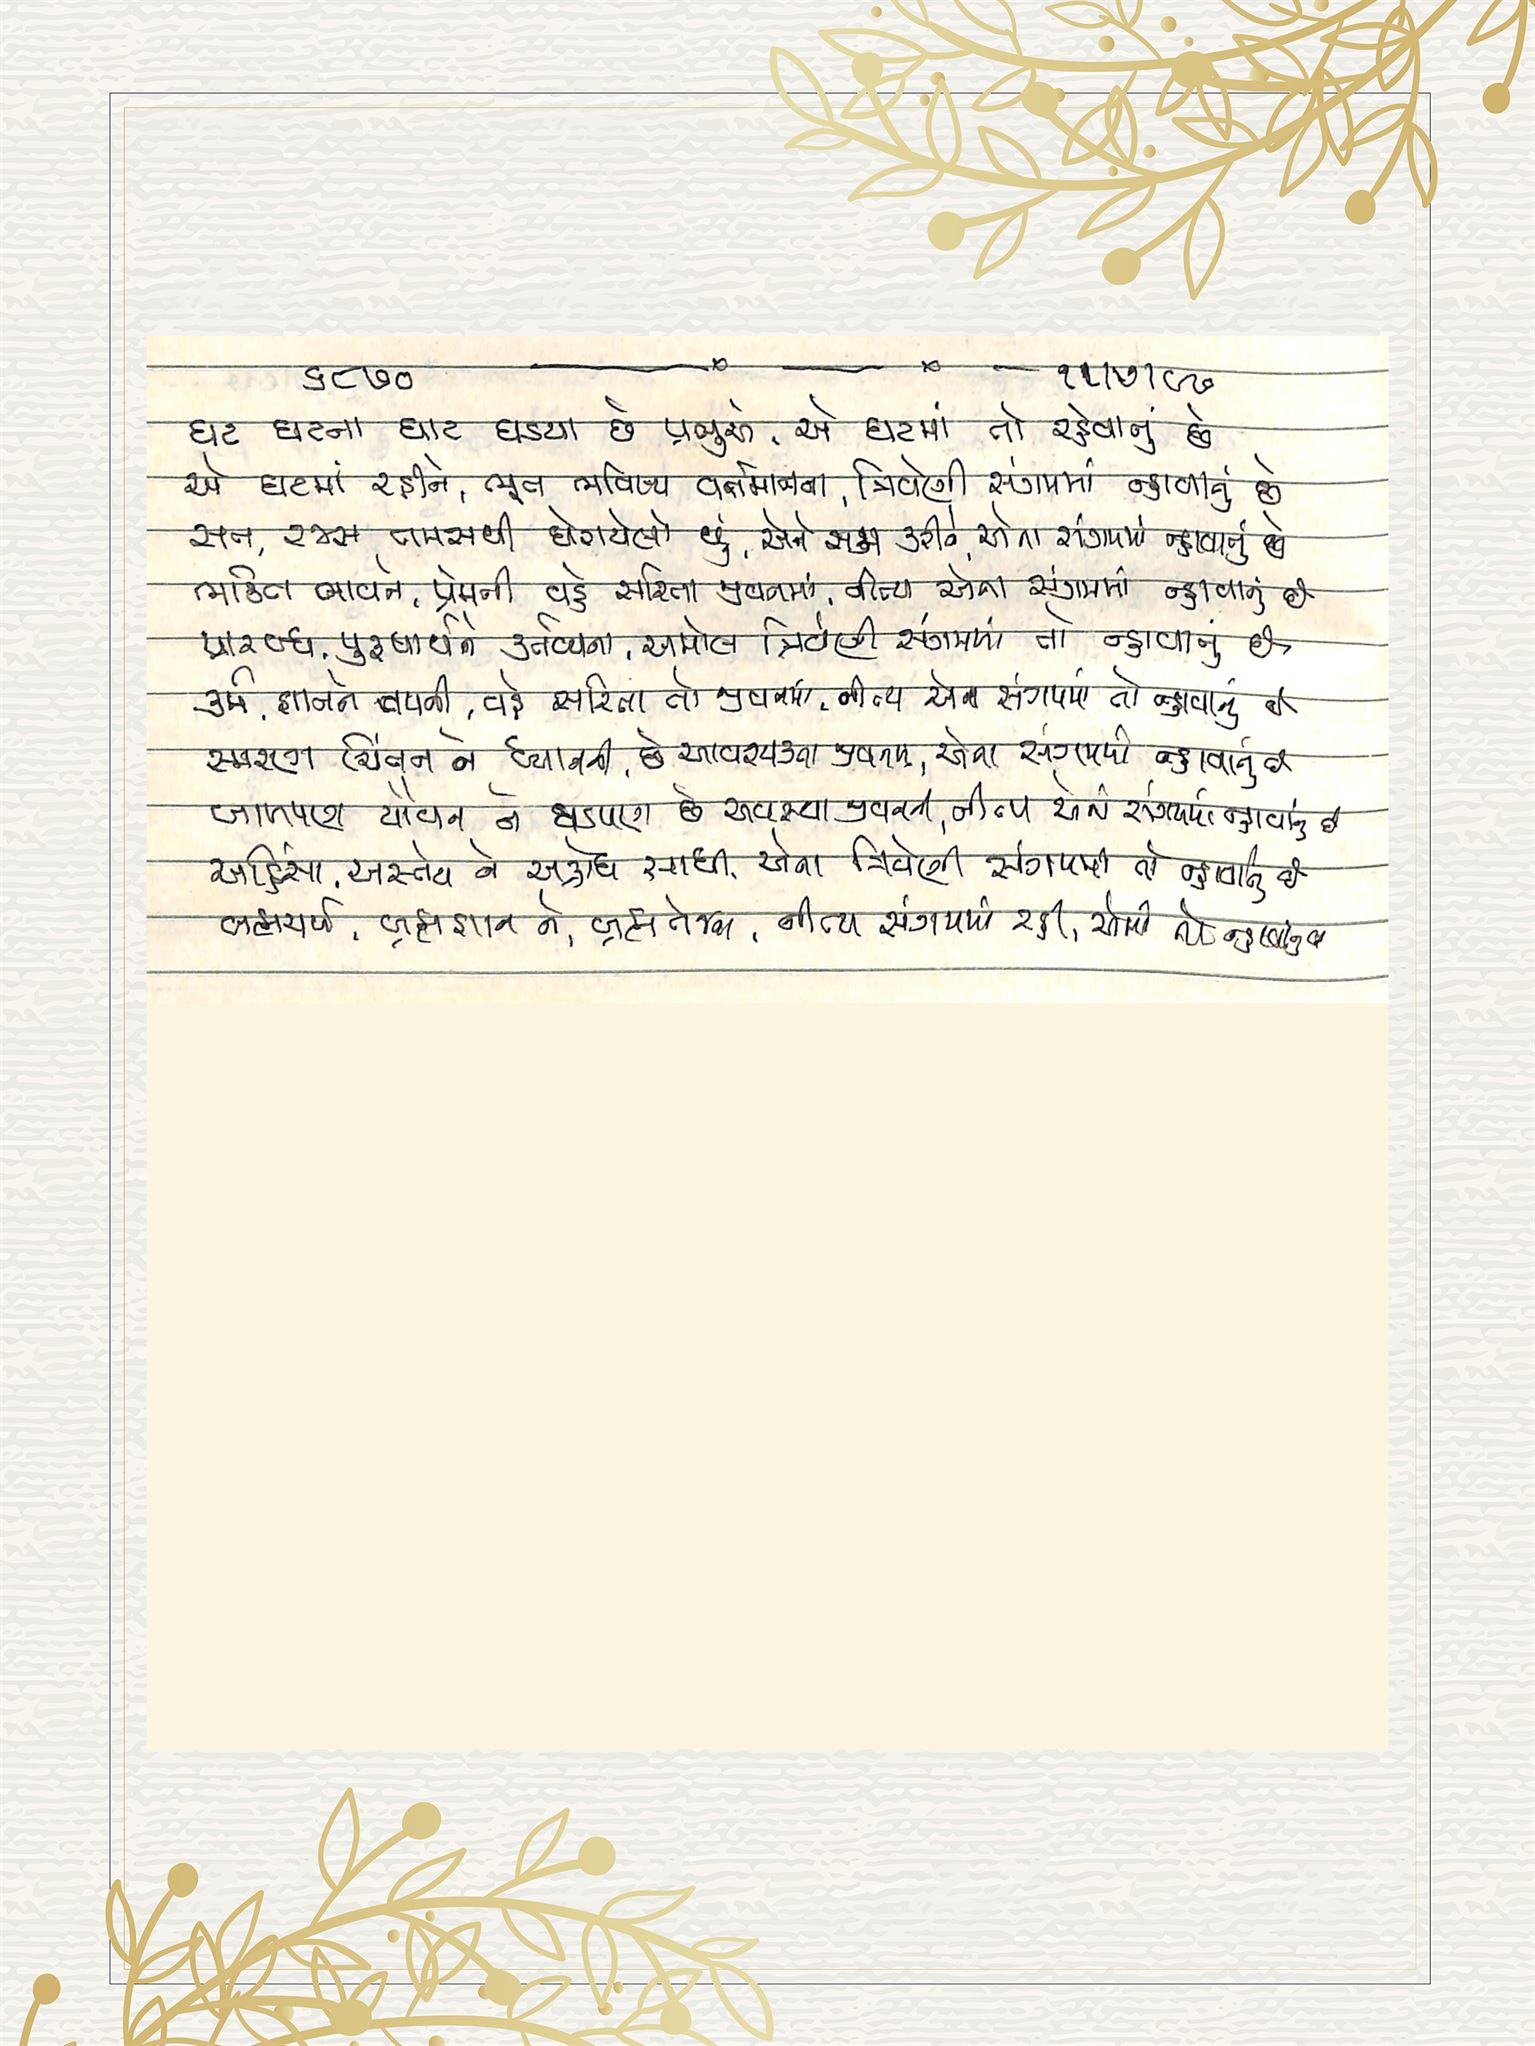 ૬૮૭૦ ૧૧/૭/૮૭
ઘટ ઘટના ઘાટ ઘડયા છે પ્રભુએ, એ ઘટમાં તો રહેવાનું છે
એ ઘટમાં રહીને, ભૂત ભવિષ્ય વર્તમાનના, ત્રિવેણી સંગમમાં ન્હાવાનું છે
સત, રજસ તમસથી ઘેરાયેલો છું, એને સમ કરીને, એના સંગમમાં ન્હાવાનું છે
ભક્તિ ભાવને, પ્રેમની વહે સરિતા જીવનમાં, નીત્ય એના સંગમમાં ન્હાવાનું છે
પ્રારબ્ધ, પુરુષાર્થને કર્તવ્યના, અમોલ ત્રિવેણી સંગમમાં તો ન્હાવાનું છે
કર્મ, જ્ઞાનને તપની, વહે સરિતા તો જીવનમાં, નીત્ય એના સંગમમાં તો ન્હાવાનું છે
સ્મરણ ચિંતન ને ધ્યાનની, છે આવશ્યકતા જીવનમાં, એના સંગમમાં ન્હાવાનું છે
બાળપણ યૌવન ને ઘડપણ છે અવસ્થા જીવનની, નીત્ય એના સંગમમાં ન્હાવાનું છે
અહિંસા, અસ્તેય ને અક્રોધ સાધી, એના ત્રિવેણી સંગમમાં તો ન્હાવાનું છે
બ્રહ્મચર્ય, બ્રહ્મજ્ઞાન ને, બ્રહ્મતેજના, નીત્ય સંગમમાં રહી, એમાં તો ન્હાવાનું છે